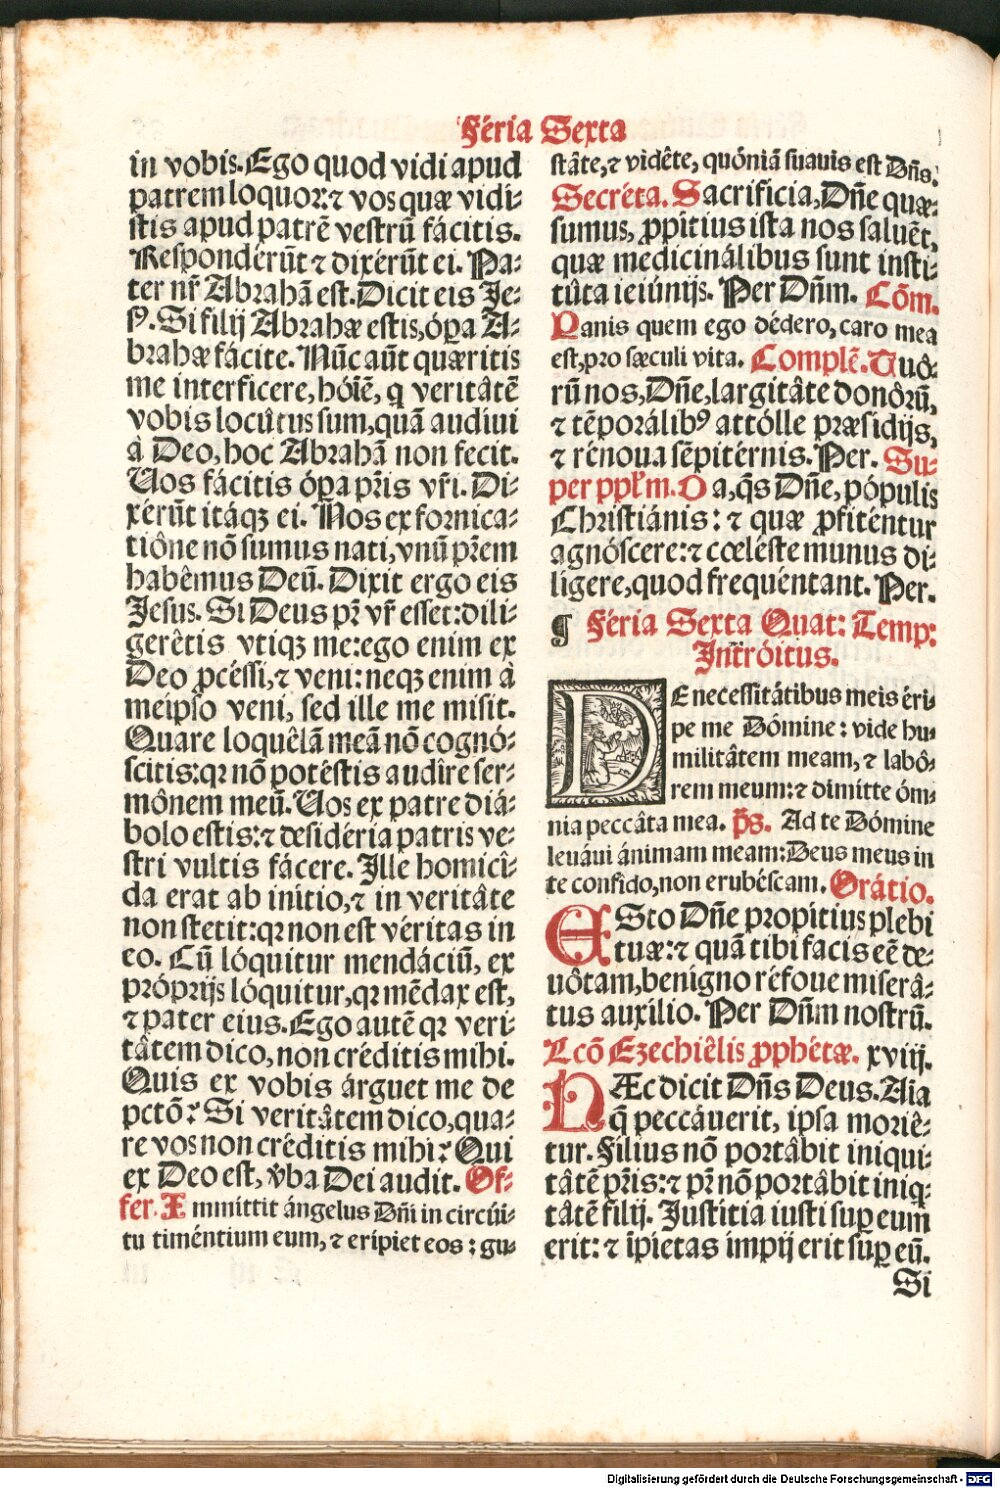 Féria Sexta
in vobis. Ego quod vidi apud
patrem loquor: ⁊ vos quæ vidi-
stis apud patrē vestrū fácitis.
Respondérūt ⁊ dixérūt ei. Pa-
ter nr̄ Abrahā est. Dicit eis Je-
sꝰ. Si filij Abrahæ estis, óꝑa A-
brahæ fácite. Nūc aūt quæritis
me interficere, hóīē, q veritâtē
vobis locûtus sum, quā audiui
à Deo, hoc Abrahā non fecit.
Uos fácitis óꝑa pr̄is vr̄i. Di-
xérūt itáqꝫ ei. Nos ex fornica-
tiône nō sumus nati, vnū pr̄em
habêmus Deū. Dixit ergo eis
Jesus. Si Deus pr̄ vr̄ esset: dili-
gerêtis vtiqꝫ me: ego enim ex
Deo ꝓcéssi, ⁊ veni: neqꝫ enim à
meipso veni, sed ille me misit.
Quare loquêlā meā nō cognó-
scitis: qꝛ nō potéstis audîre ser-
mônem meū. Uos ex patre diá-
bolo estis: ⁊ desidéria patris ve-
stri vultis fácere. Ille homicî-
da erat ab inítio, ⁊ in veritâte
non stetit: qꝛ non est véritas in
eo. Cū lóquitur mendáciū, ex
próprijs lóquitur, qꝛ mēdax est,
⁊ pater eius. Ego autē qꝛ veri-
tâtem dico, non créditis mihi.
Quis ex vobis árguet me de
pctō? Si veritâtem dico, qua-
re vos non créditis mihi? Qui
ex Deo est, v̄ba Dei audit. Of-
fer. Immittit ángelus Dn̄i in circúi-
tu timéntium eum, ⁊ eripiet eos: gu-
stâte, ⁊ vidête, quóniā suauis est Dn̄s.
Secréta. Sacrificia, Dn̄e quæ-
sumus, ꝓpítius ista nos saluēt,
quæ medicinálibus sunt insti-
tûta ieiúnijs. Per Dn̄m. Cōm.
Panis quem ego dédero, caro mea
est, pro sæculi vita. Complē. Uuô-
rū nos, Dn̄e, largitâte donôrū,
⁊ tēporálibꝰ attólle præsídijs,
⁊ rénoua sēpitérnis. Per. Su-
per ppl̄m. Da, q̄s Dn̄e, pópulis
Christiánis: ⁊ quæ ꝓfiténtur
agnóscere: ⁊ cœléste munus di-
lígere, quod frequéntant. Per.
¶ Féria Sexta Quat: Temp:
Intróitus.
DE necessitátibus meis éri-
pe me Dómine: vide hu-
militâtem meam, ⁊ labô-
rem meum: ⁊ dimitte óm-
nia peccâta mea. p̄s. Ad te Dómine
leuáui ánimam meam: Deus meus in
te confido, non erubéscam. Orátio.
ESto Dn̄e propítius plebi
tuæ: ⁊ quā tibi facis eē de-
uôtam, benigno réfoue miserâ-
tus auxílio. Per Dn̄m nostrū.
Lcō Ezechiêlis ꝓphétæ. xviij.
HÆc dicit Dn̄s Deus. Aīa
q̄ peccáuerit, ipsa moriê-
tur. Filius nō portâbit iniqui-
tâtē pr̄is: ⁊ pr̄ nō portâbit iniq-
tâtē filij. Justitia iusti suꝑ eum
erit: ⁊ īpietas impij erit suꝑ eū.
Si
Digitalisierung gefördert durch die Deutsche Forschungsgemeinschaft - DFG